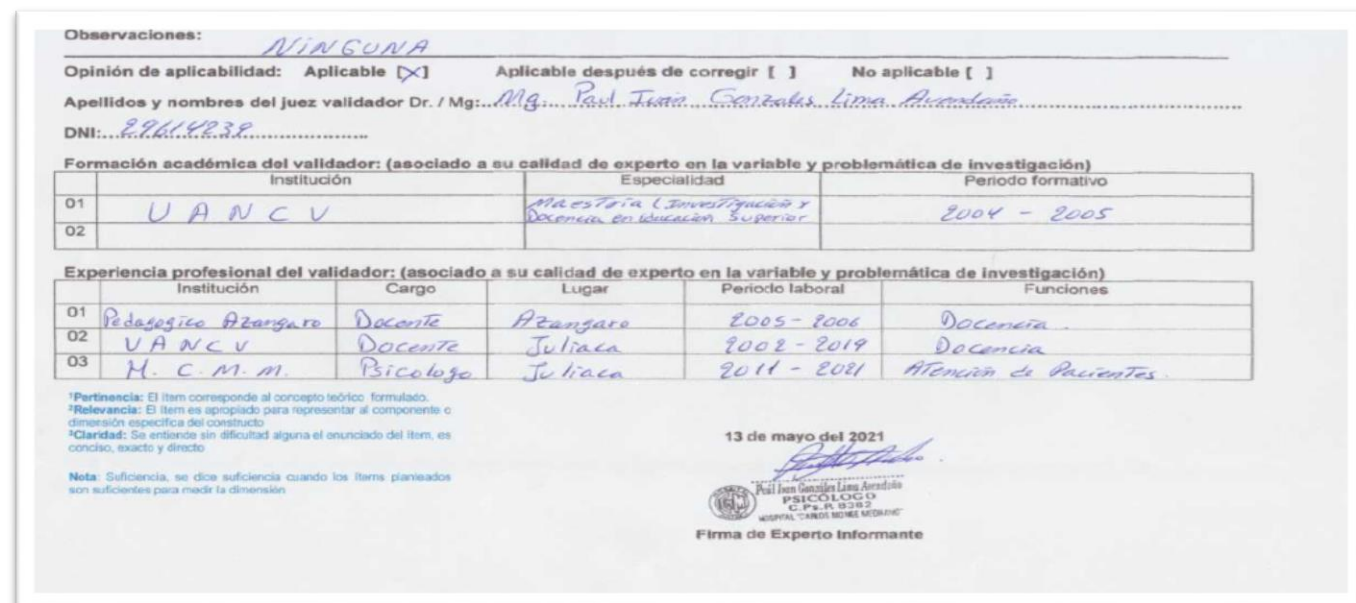 Observaciones: NINGUNA
Opinión de aplicabilidad: Aplicable [X] Aplicable después de corregir [ ] No aplicable [ ]
Apellidos y nombres del juez validador Dr. / Mg: Mg. Paul Iván Gonzales Lima Avendaño
DNI: 29614239
Formación académica del validador: (asociado a su calidad de experto en la variable y problemática de investigación)
Institución Especialidad Periodo formativo
01 UANCV Maestria (Investigación y Docencia en educacion Superior 2004 - 2005
02
Experiencia profesional del validador: (asociado a su calidad de experto en la variable y problemática de investigación)
Institución Cargo Lugar Periodo laboral Funciones
01 Pedagogico Azangaro Docente Azangaro 2005 - 2006 Docencia.
02 UANCV Docente Juliaca 2002 - 2019 Docencia
03 H. C. M. M. Psicologo Juliaca 2011 - 2021 Atención de Pacientes.
¹Pertinencia: El ítem corresponde al concepto teórico formulado.
²Relevancia: El ítem es apropiado para representar al componente o
dimensión específica del constructo
³Claridad: Se entiende sin dificultad alguna el enunciado del ítem, es
conciso, exacto y directo
Nota: Suficiencia, se dice suficiencia cuando los ítems planteados
son suficientes para medir la dimensión
13 de mayo del 2021
Paúl Ivan Gonzales Lima Avendaño
PSICÓLOGO
C.Ps.P. 8362
HOSPITAL "CARLOS MONGE MEDRANO"
Firma de Experto Informante